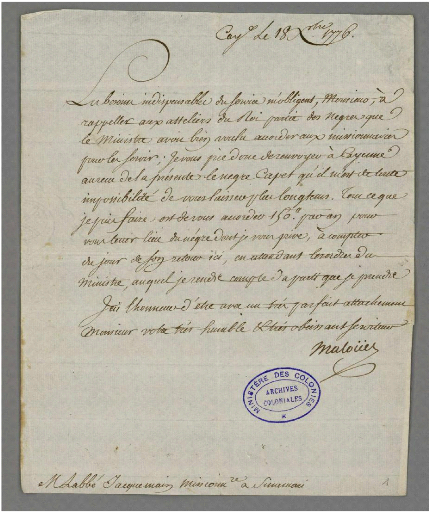 Cay.e Le 18 Xbre 1776.
Les besoins indispensables du service m'obligent, Monsieur, à
rappeller aux atteliers du Roi partie des negres que
le Ministre avoit bien voulu accorder aux missionnaires
pour les servir; Je vous prie donc de renvoyer à Cayenne
au reçu de la présente le negre Crepet qu'il m'est de toute
impossibilité de vous laisser plus longtems. Tout ce que
je puis faire est de vous accorder 150.# par an pour
vous tenir lieu du negre dont je vous prive, à compter
du jour de son retour ici, en attendant les ordres du
Ministre, auquel je rends compte du parti que je prends
J'ai l'honneur d'etre avec un tres parfait attachement
Monsieur votre très humble & très obeissant serviteur
Maloüet
MINISTÈRE DES COLONIES
ARCHIVES
COLONIALES
M. L'abbé Jacquemin missionn.re à Sinnamari
1